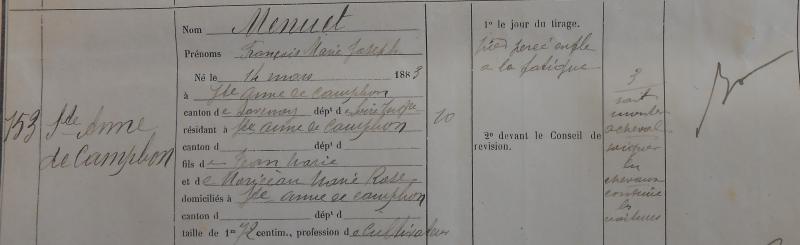 153
Ste Anne
de Campbon
Nom Menuet
Prénoms François Marie Joseph
Né le 14 mars 1883
à Ste Anne de Campbon
canton de Savenay dépt de Loire Infre
résidant à Ste Anne de Campbon
canton d dépt d
fils de Jean Marie
et de Moriceau Marie Rose
domiciliés à Ste Anne de Campbon
canton d dépt d
taille de 1m 72 centim., profession de cultivateur
10
1º le jour du tirage.
pied percé enfle
a la fatigue
2º devant le Conseil de
revision.
3
sait
monter
a cheval
soigner
les
chevaux
conduire
les
voitures